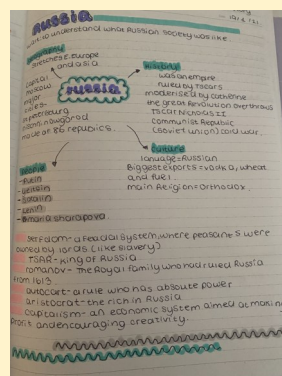 Russia
to understand what Russian society was like
Geography
stretches Europe
and asia
capital
moscow
major
cities-
st petersburg
nizhny novgorod
made of 86 republics.
Russia
History
was an empire
ruled by Tsars
modernised by catherine
the great Revolution overthrows
TSAR Nicholas II
Communist Republic
(Soviet union) cold war.
Culture
language=Russian
Biggest exports=vodka, wheat
and fuel.
main Religion=Orthodox.
People
-Putin
-yeltsin
-Stalin
-Lenin
-maria sharapova.
serfdom-a feudal system, where peasants were
owned by lords (like slavery)
TSAR-king of Russia
romanov-The Royal family who had ruled Russia
from 1613
autocrat-a rule who has absolute power
aristocrat-the rich in Russia
capitalism-an economic system aimed at making
profit and encouraging creativity.